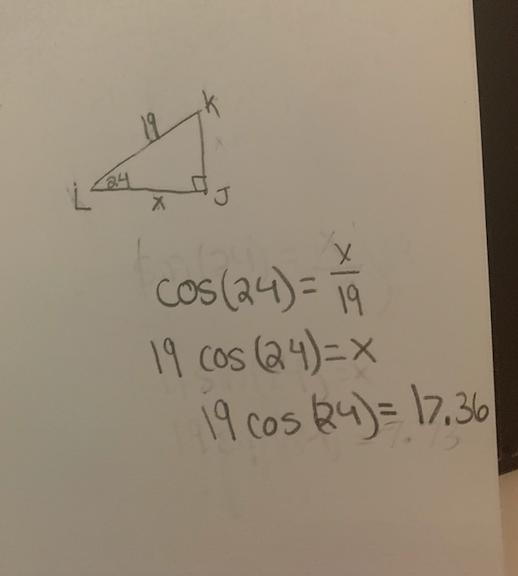 K
19
24
L
x
J
cos(24)= x/19
19 cos(24)=x
19 cos(24)= 17.36